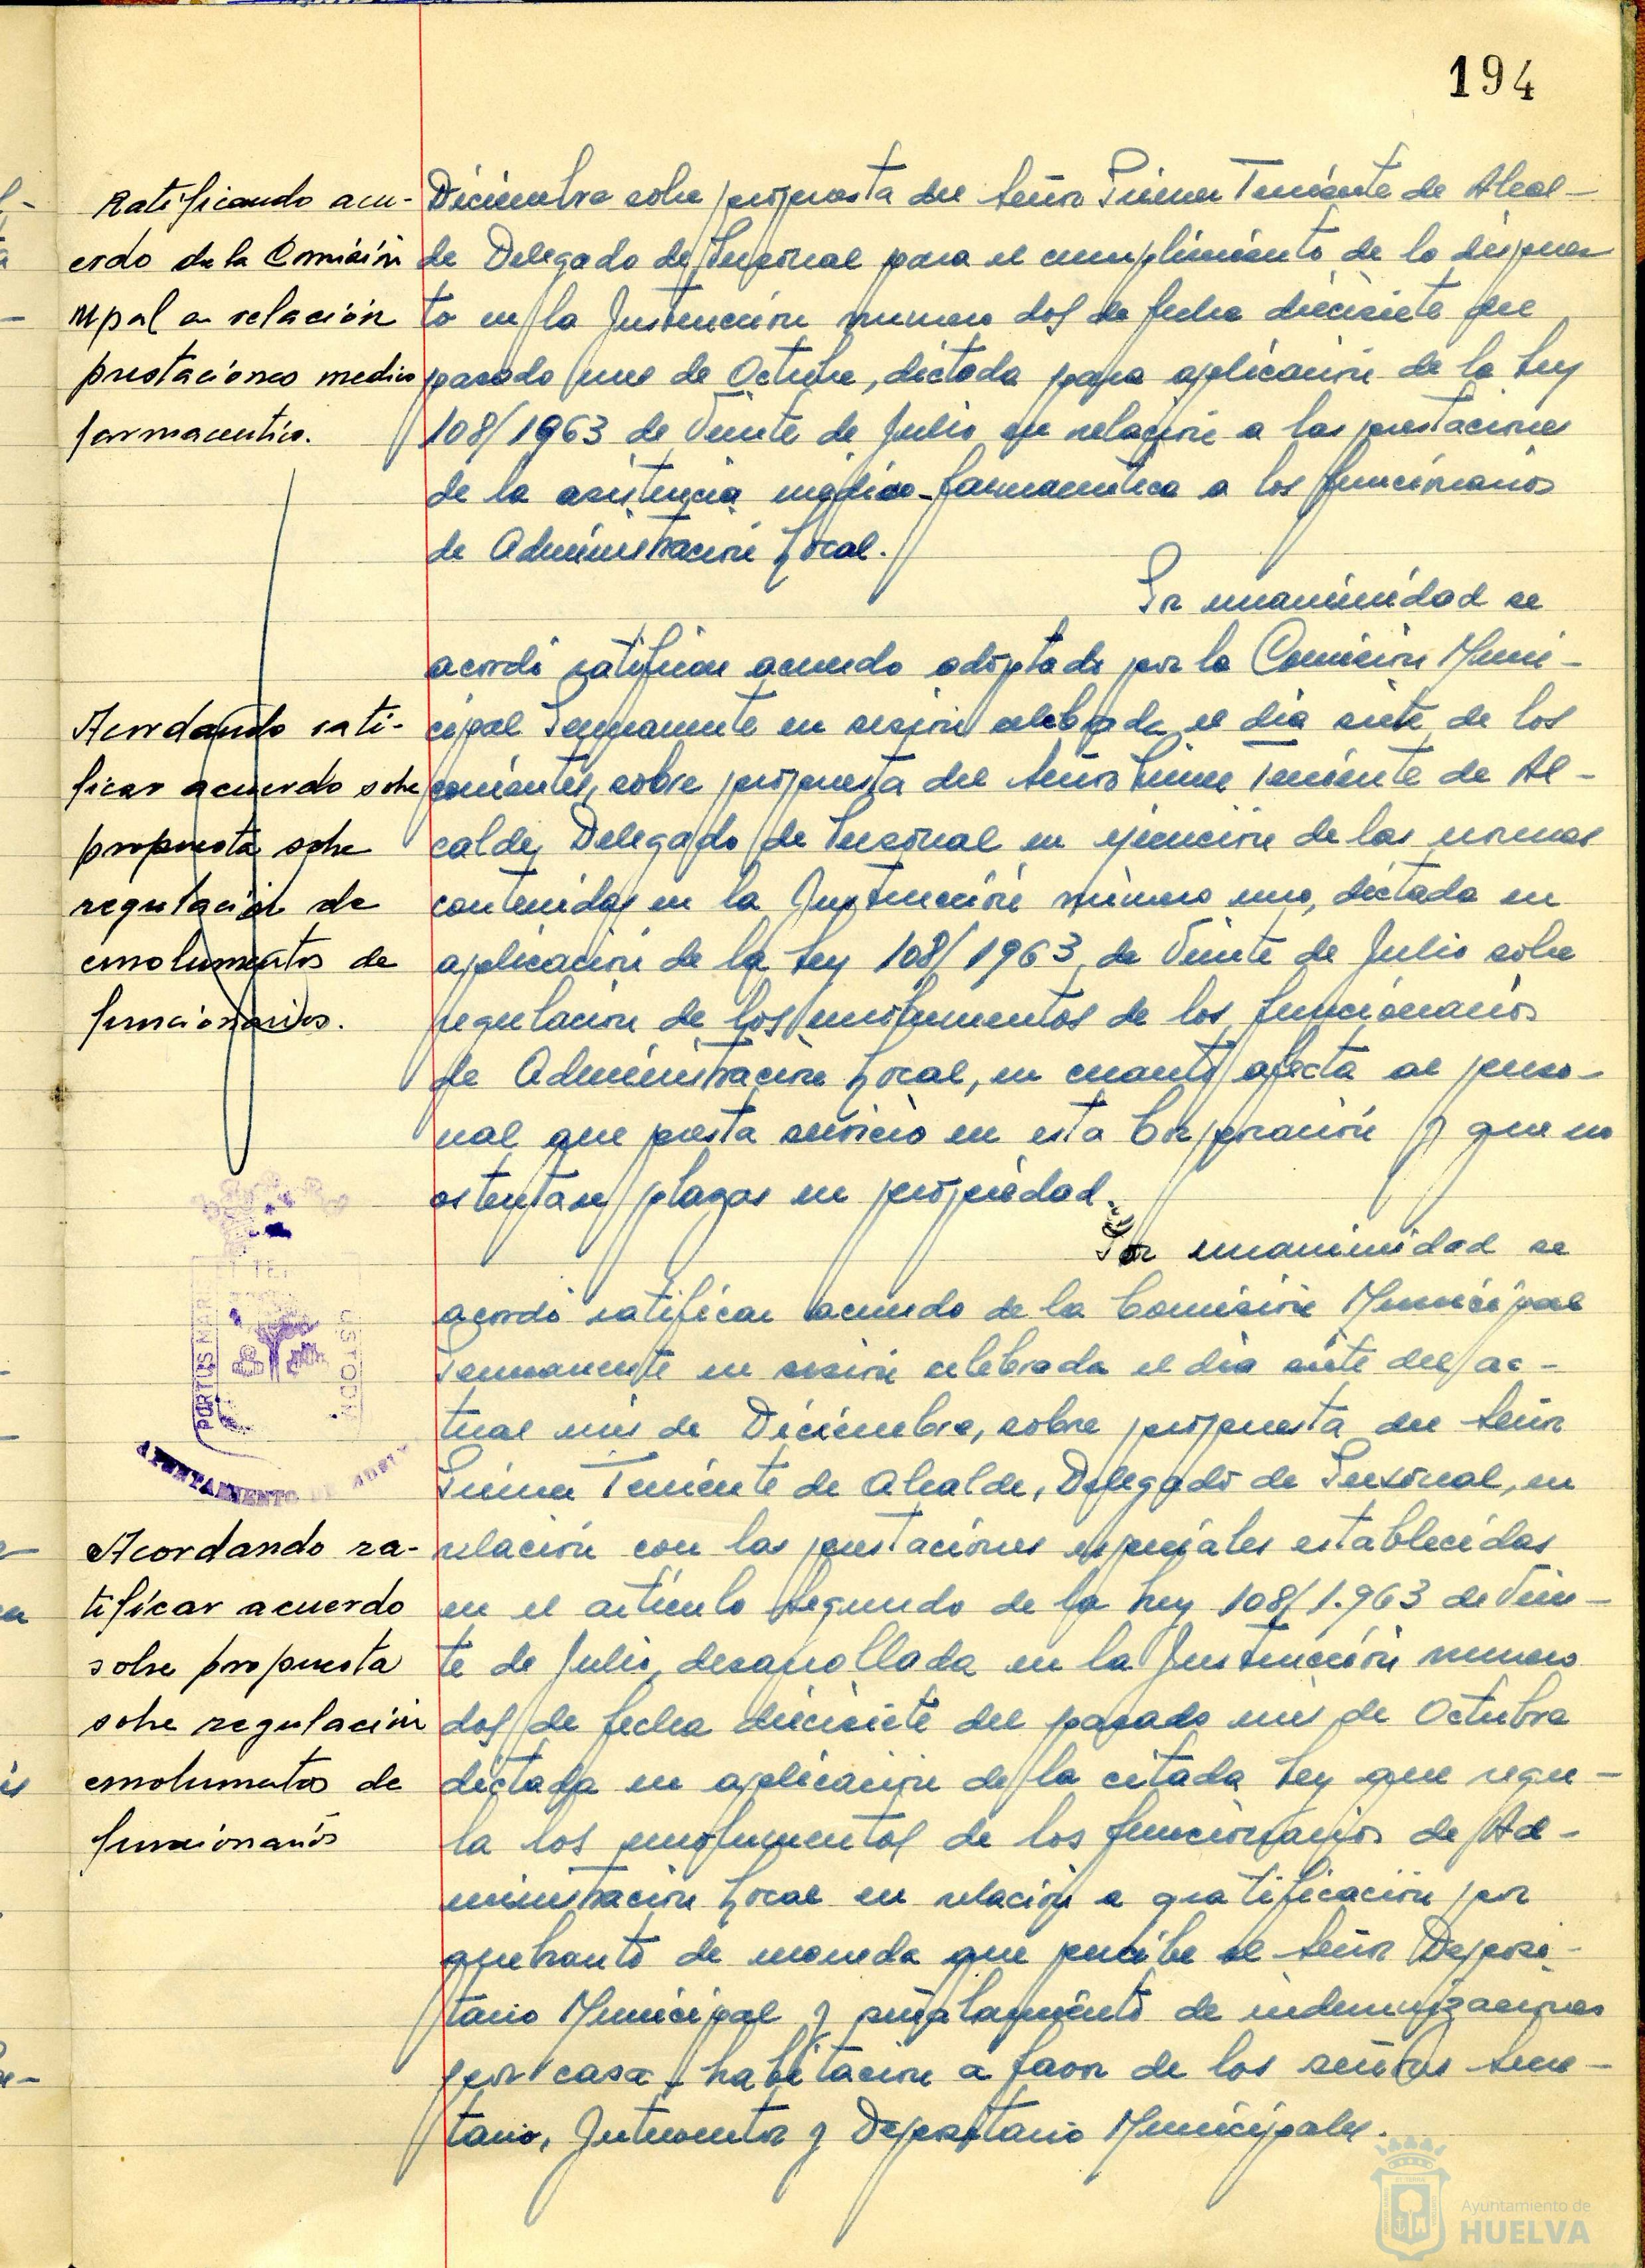 194
Ratificando acu-
erdo de la Comisión
Mpal en relación
prestaciones medico
farmaceutica.
Diciembre sobre propuesta del Señor Primer Teniente de Alcal-
de Delegado de Personal para el cumplimiento de lo dispues
to en la Instrucción numero dos de fecha diecisiete del
pasado mes de Octubre, dictada para aplicación de la Ley
108/1963 de Veinte de Julio en relación a las prestaciones
de la asistencia médico-farmaceutica a los funcionarios
de Administración Local.
Por unanimidad se
acordó ratificar acuerdo adoptado por la Comisión Muni-
cipal Permanente en sesión celebrada el día siete de los
corrientes, sobre propuesta del Señor Primer Teniente de Al-
calde, Delegado de Personal en ejecución de las normas
contenidas en la Instrucción número uno, dictada en
aplicación de la Ley 108/1963, de Veinte de Julio sobre
regulación de los emolumentos de los funcionarios
de Administración Local, en cuanto afecta al perso-
nal que presta servicio en esta Corporación y que no
ostentasen plazas en propiedad.
Acordando rati-
ficar acuerdo sobre
propuesta sobre
regulación de
emolumentos de
funcionarios.
Por unanimidad se
acordó ratificar acuerdo de la Comisión Municipal
Permanente en sesión celebrada el día siete del ac-
tual mes de Diciembre, sobre propuesta del Señor
Primer Teniente de Alcalde, Delegado de Personal, en
relación con las prestaciones especiales establecidas
en el artículo Segundo de la Ley 108/1.963 de Vein-
te de Julio, desarrollada en la Instrucción numero
dos de fecha diecisiete del pasado mes de Octubre
dictada en aplicación de la citada Ley que regu-
la los emolumentos de los funcionarios de Ad-
ministración Local en relación a gratificación por
quebranto de moneda que percibe el Señor Deposi-
tario Municipal y señalamiento de indemnizaciones
por casa-habitación a favor de los señores Secre-
tario, Interventor y Depositario Municipales.
PORTUS MARIS
ET TE
CUSTODIA
AYUNTAMIENTO DE HUELVA
Acordando ra-
tificar acuerdo
sobre propuesta
sobre regulación
emolumentos de
funcionarios
Ayuntamiento de
HUELVA